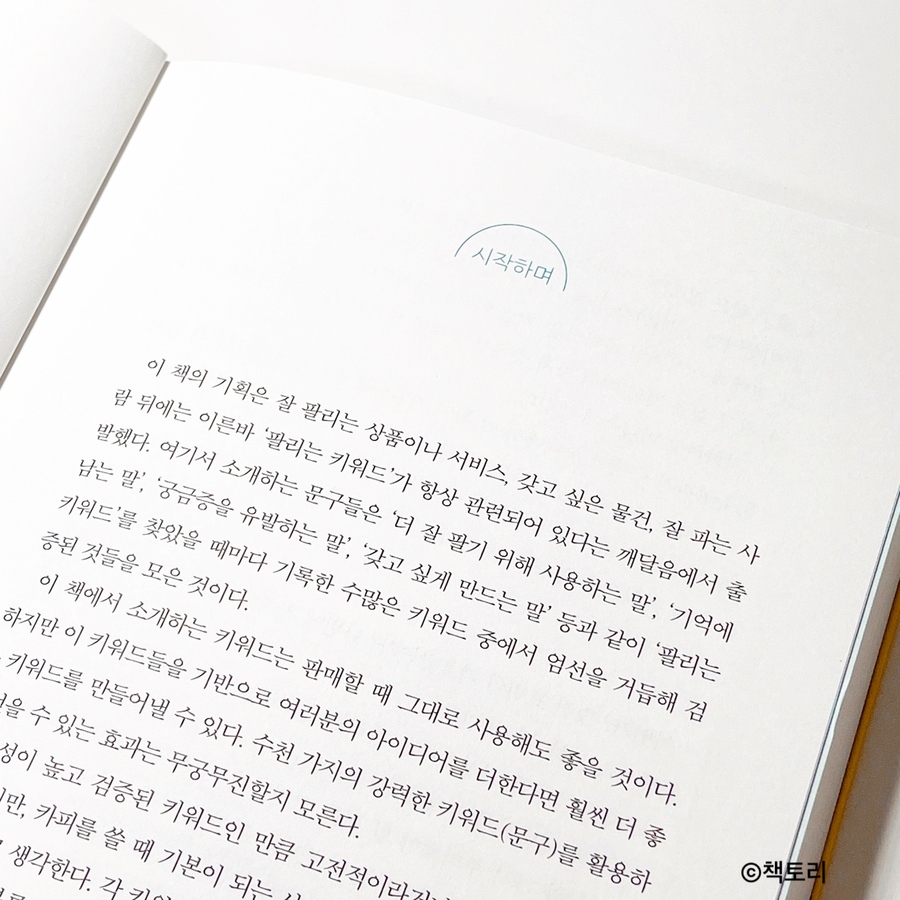 시작하며
이 책의 기획은 잘 팔리는 상품이나 서비스, 갖고 싶은 물건, 잘 파는 사
람 뒤에는 이른바 ‘팔리는 키워드’가 항상 관련되어 있다는 깨달음에서 출
발했다. 여기서 소개하는 문구들은 ‘더 잘 팔기 위해 사용하는 말’, ‘기억에
남는 말’, ‘궁금증을 유발하는 말’, ‘갖고 싶게 만드는 말’ 등과 같이 ‘팔리는
키워드’를 찾았을 때마다 기록한 수많은 키워드 중에서 엄선을 거듭해 검
증된 것들을 모은 것이다.
이 책에서 소개하는 키워드는 판매할 때 그대로 사용해도 좋을 것이다.
하지만 이 키워드들을 기반으로 여러분의 아이디어를 더한다면 훨씬 더 좋
키워드를 만들어낼 수 있다. 수천 가지의 강력한 키워드(문구)를 활용하
수 있는 효과는 무궁무진할지 모른다.
높고 검증된 키워드인 만큼
카피를 쓸 때 기본이 되는
생각한다. 각
©책토리